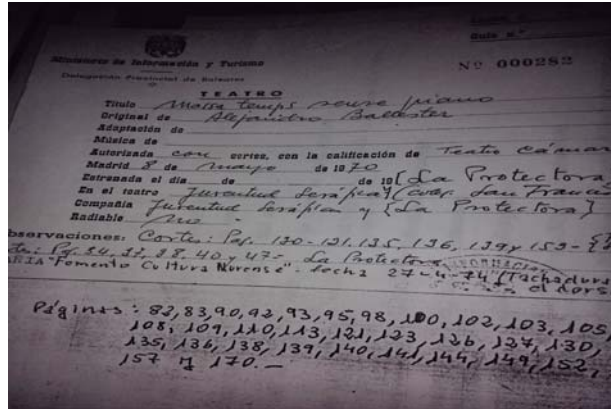 Guía n.º
Ministerio de Información y Turismo
Nº 000282
Delegación Provincial de Baleares
TEATRO
Título Massa temps sense piano
Original de Alejandro Ballester
Adaptación de
Música de
Autorizada con cortes, con la calificación de Teatro Cámar
Madrid 8 de mayo de 1970
Estrenada el día de de 19 [La Protectora
En el teatro Juventud Seráfica (coleg. San Franc
Compañía Juventud Seráfica y {La Protectora}
Radiable No -
bservaciones: Cortes: Pag. 120-121, 135, 136, 139 y 153-
Pg. 34, 37, 38, 40 y 47- La Protectora
ARIA "Fomento Cultura Nurense" - fecha 27-4-74 (Tachadura
INFORMACION
al dors
Páginas: 82, 83, 90, 92, 93, 95, 98, 100, 102, 103, 105
108, 109, 110, 113, 121, 123, 126, 127, 130,
135, 136, 138, 139, 140, 141, 144, 149, 152,
157 y 170.-